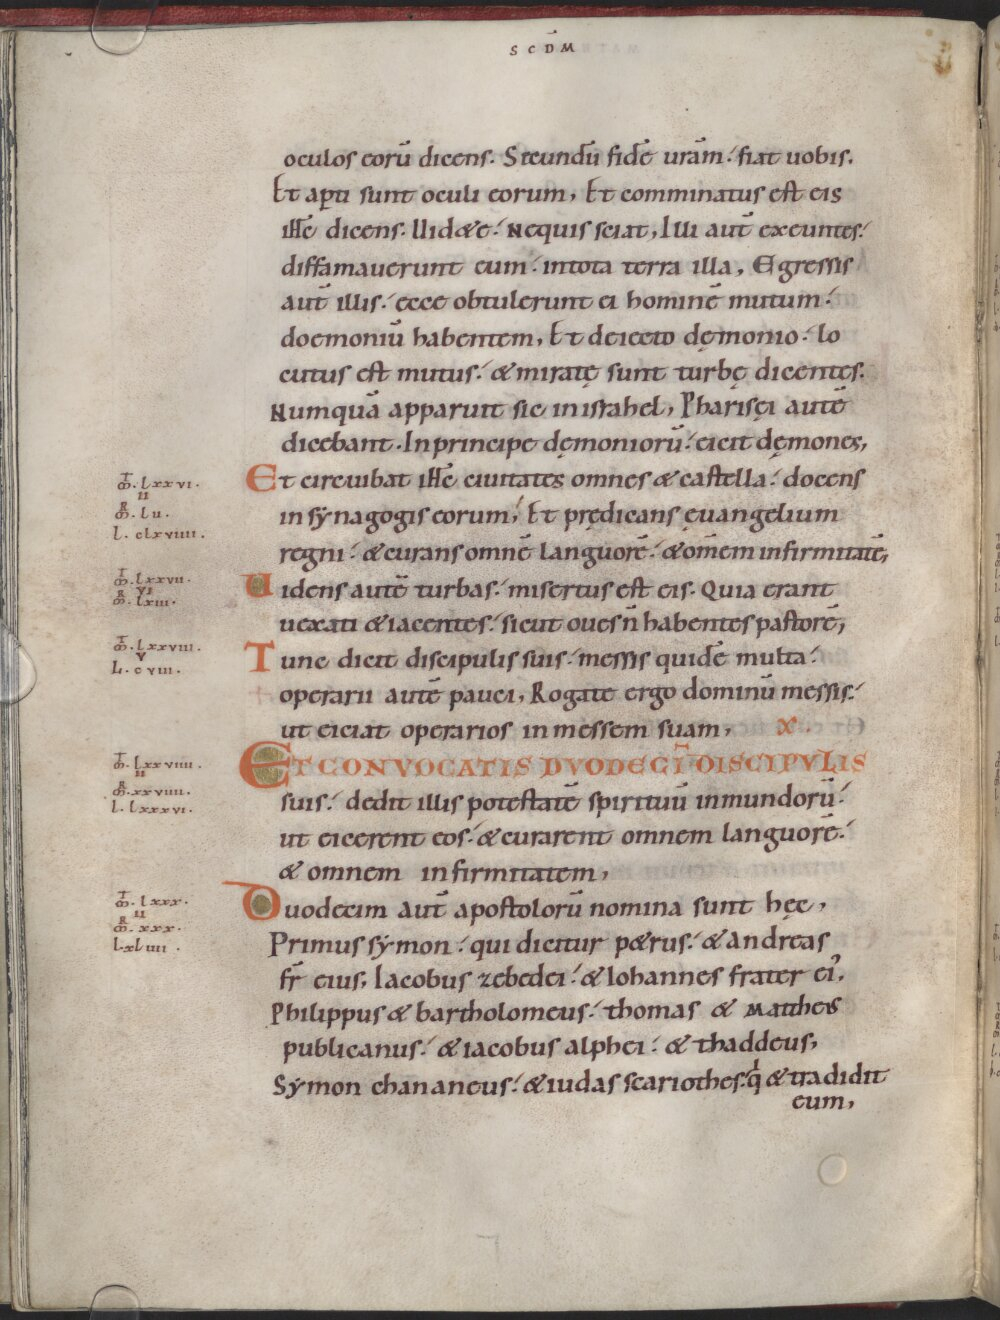 SCDM̄
oculos eorū dicens. Secundū fidē urām. fiat uobis.
Et apti sunt oculi eorum, Et comminatus est eis
ihc̄ dicens. Uidete. Nequis sciat, Illi aut̄ exeuntes.
diffamauerunt eum. intota terra illa, Egressis
aut̄ illis. ecce obtulerunt ei hominē mutum.
doemoniū habentem, Et deiecto dęmonio. lo
cutus est mutus. & miratę sunt turbę dicentes.
Numquā apparuit sic inisrahel, Pharisęi autē
dicebant. Inprincipe dęmoniorū. eicit dęmones,
Et circuibat ihc̄ ciuitates omnes & castella. docens
insynagogis eorum, Et prędicans ęuangelium
regni. & curans omnē languorē. & om̄em infirmitatē,
Uidens autē turbas. misertus est eis. Quia erant
uexati & iacentes. sicut oues n̄ habentes pastorē,
Tunc dicit discipulis suis. messis quidē multa.
operarii autē pauci, Rogate ergo dominū messis.
ut eiciat operarios inmessem suam, X.
ET CONVOCATIS DVODECĪ DISCIPVLIS
suis. dedit illis potestatē spirituū inmundorū.
ut eicerent eos. & curarent omnem languorē.
& omnem infirmitatem,
Duodecim aut̄ apostolorū nomina sunt hęc,
Primus symon. qui dicitur petrus. & andreas
fr̄ eius, Iacobus zebedei. & Iohannes frater ei'.
Philippus & bartholomeus. thomas & Mattheus
publicanus. & iacobus alphei. & thaddeus,
Symon chananeus. & iudas scariothes. q & tradidit
eum,
m̄. lxxvi.
II
m̄. lu.
L. clxviiii.
m̄. lxxvii.
VI
m̄. lxiii.
m̄. lxxviii.
V
L. cviii.
m̄. lxxviiii.
II
m̄. xxviiii.
l. lxxxvi.
m̄. lxxx.
II
m̄. xxx.
l. xliiii.